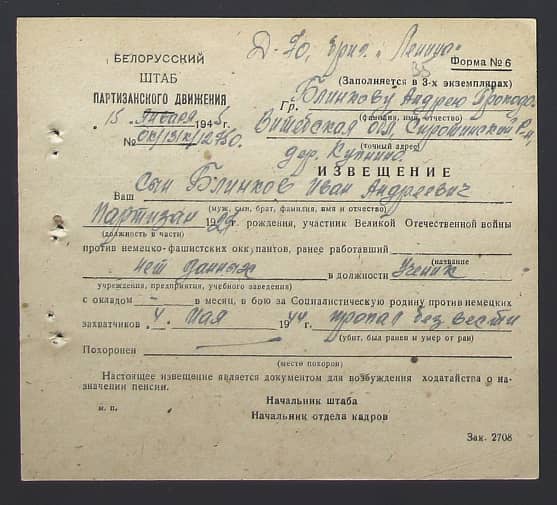 Д-20, бриг. "Ленина"
БЕЛОРУССКИЙ
ШТАБ
ПАРТИЗАНСКОГО ДВИЖЕНИЯ
15 января 1945
№
Форма № 6
(Заполняется в 3-х экземплярах)
Гр. Блинкову Андрею
(фамилия, имя, отчество)
Витебская обл, Сиротинский р-н,
(точный адрес)
дер.
ИЗВЕЩЕНИЕ
Ваш сын Блинков Иван Андреевич
(муж, сын, брат, фамилия, имя и отчество)
Партизан 19 рождения, участник Великой Отечественной войны
(должность в части)
против немецко-фашистских оккупантов, ранее работавший
(название
нет данных в должности Ученик
учреждения, предприятия, учебного заведения)
с окладом — в месяц, в бою за Социалистическую родину против немецких
захватчиков 4. мая 1944 г. пропал без вести
(убит, был ранен и умер от ран)
Похоронен
(место похорон)
Настоящее извещение является документом для возбуждения ходатайства о на-
значении пенсии.
Начальник штаба
м. п.
Начальник отдела кадров
Зак. 2708